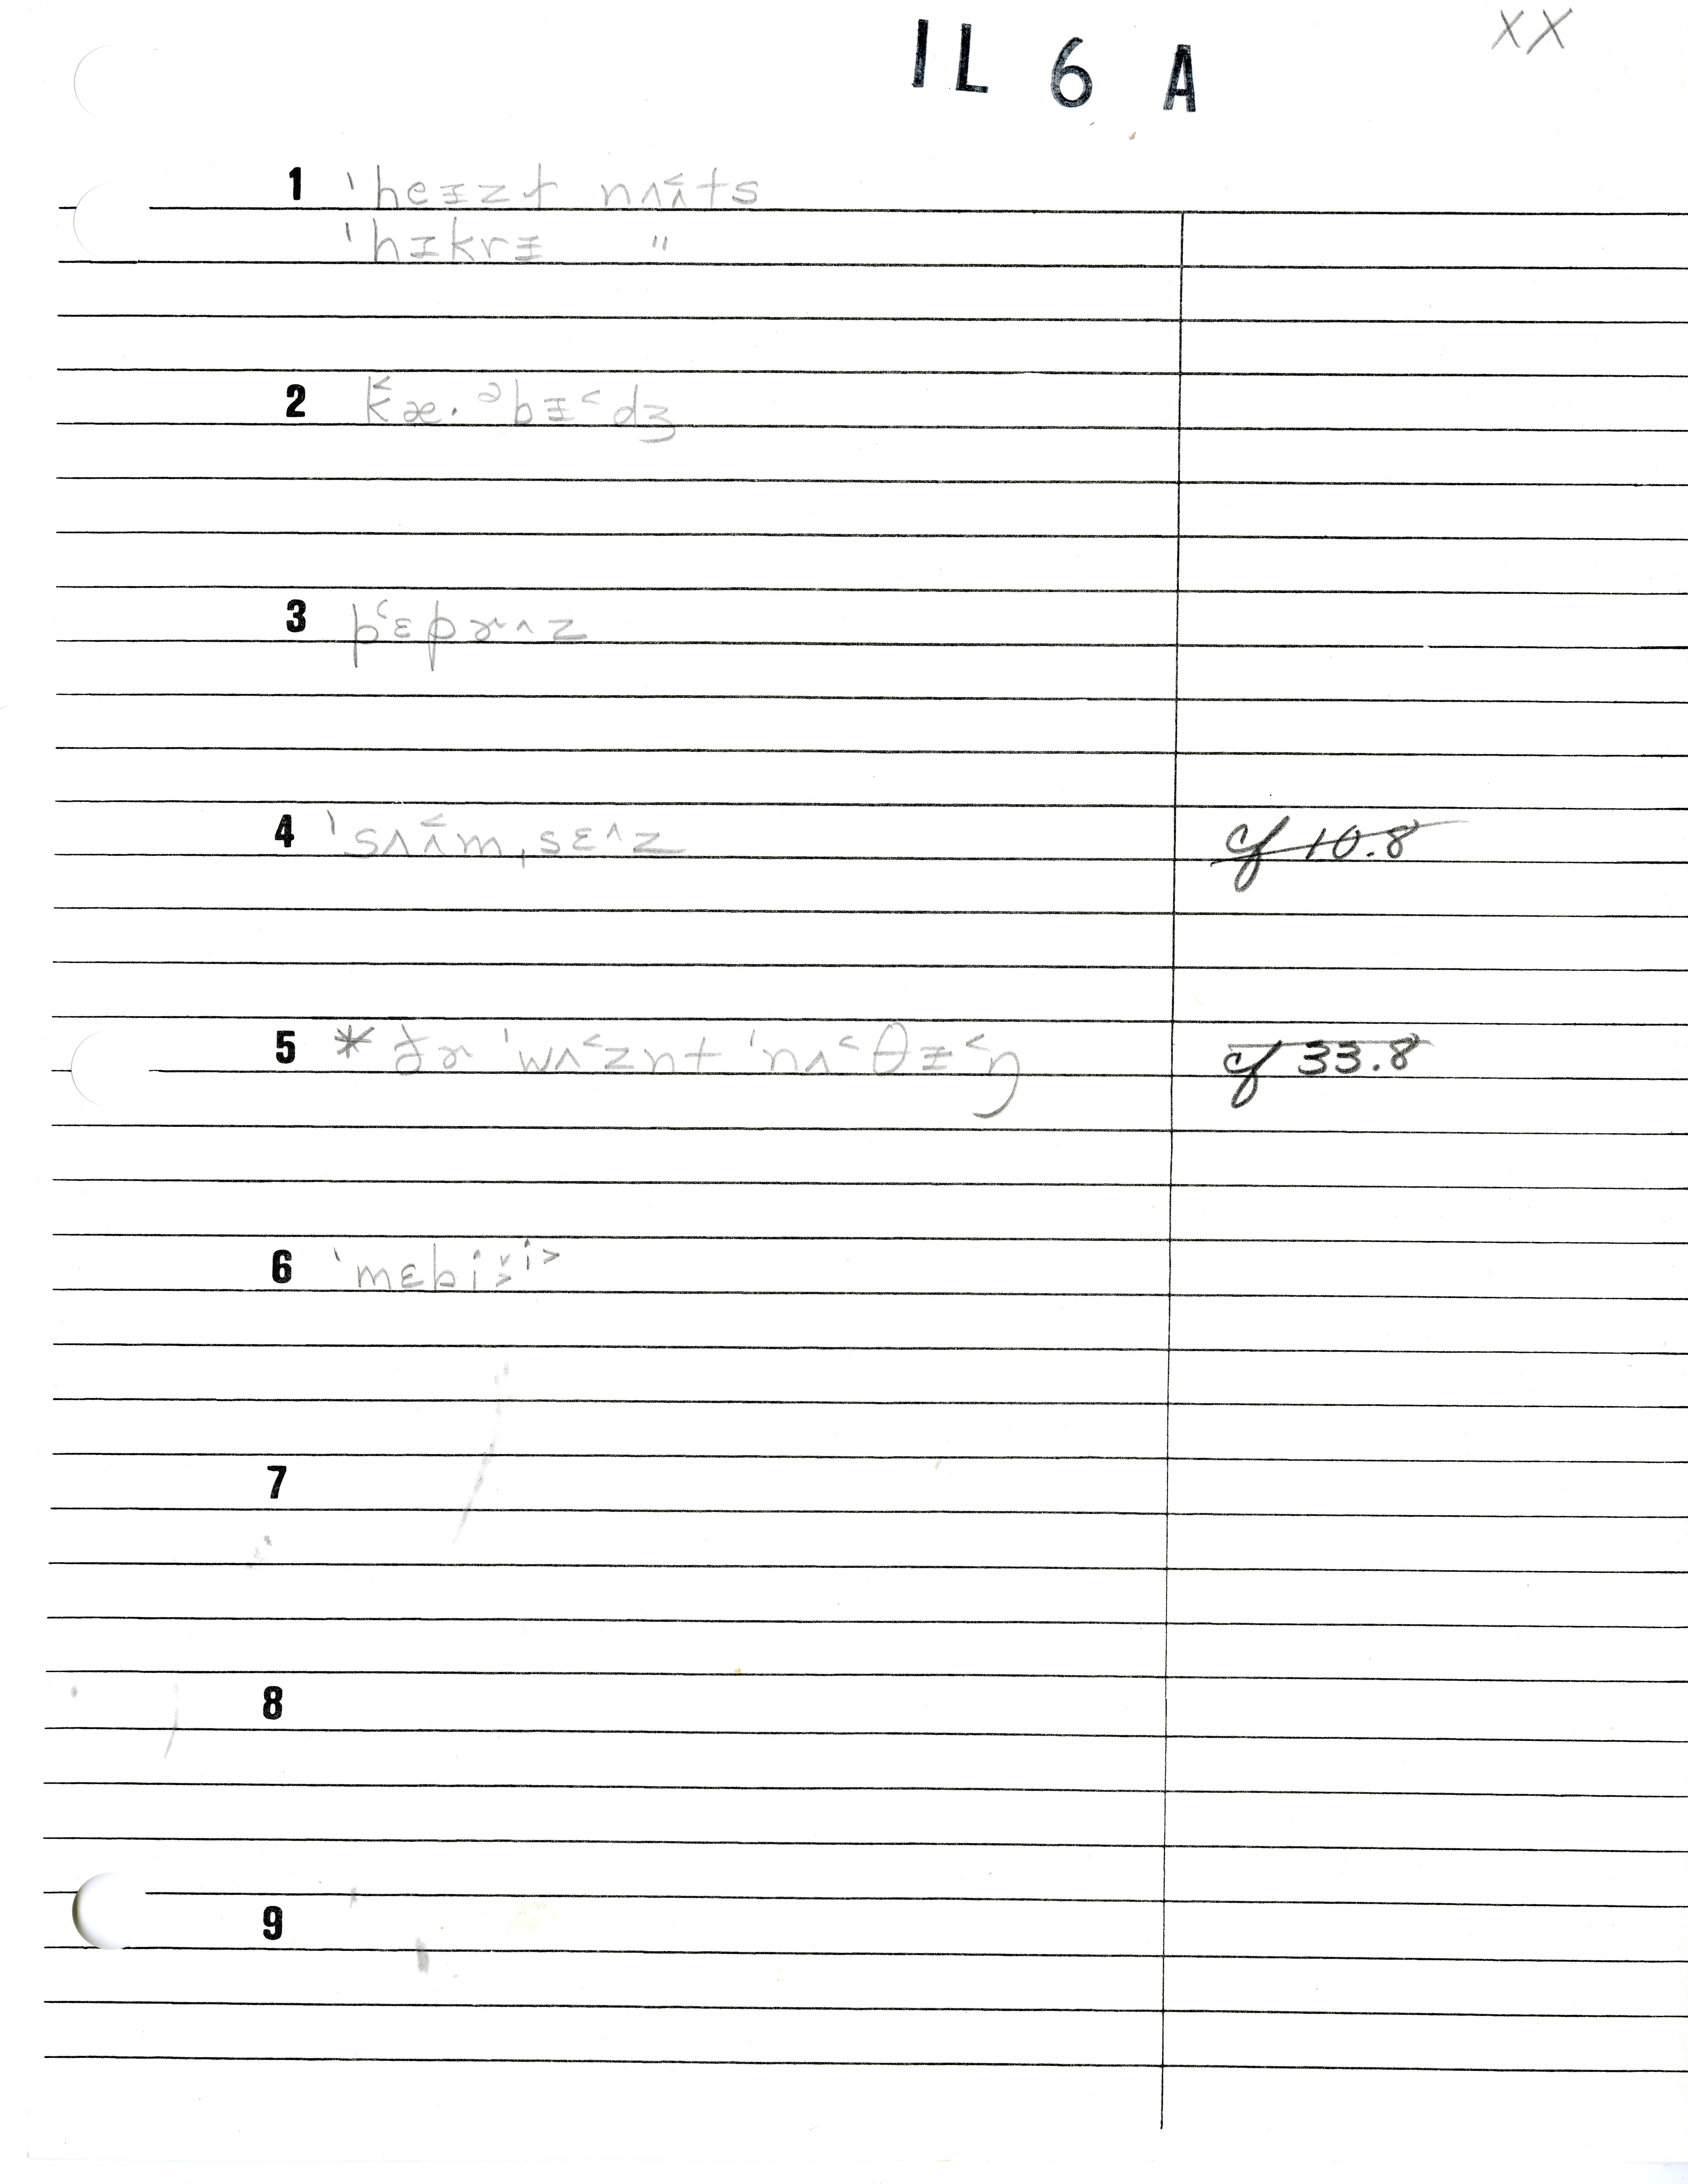 XX
1L 6 A
1 ˈheɪzɫ nʌɪ̂ts
ˈhɪkrɪ "
2 k̆æ·ᵊbɪ˂dʒ
3 pʻɛpɚ^z
4 ˈsʌɪ̂m,sɛ^z cf 10.8
5 * ðɚ ˈwʌ˂znt ˈnʌ˂θɪ˂ŋ cf 33.8
6 ˈmɛbiˇi˃
7
8
9